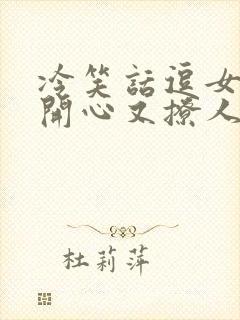 冷笑話逗女
開心又撩人
杜莉萍